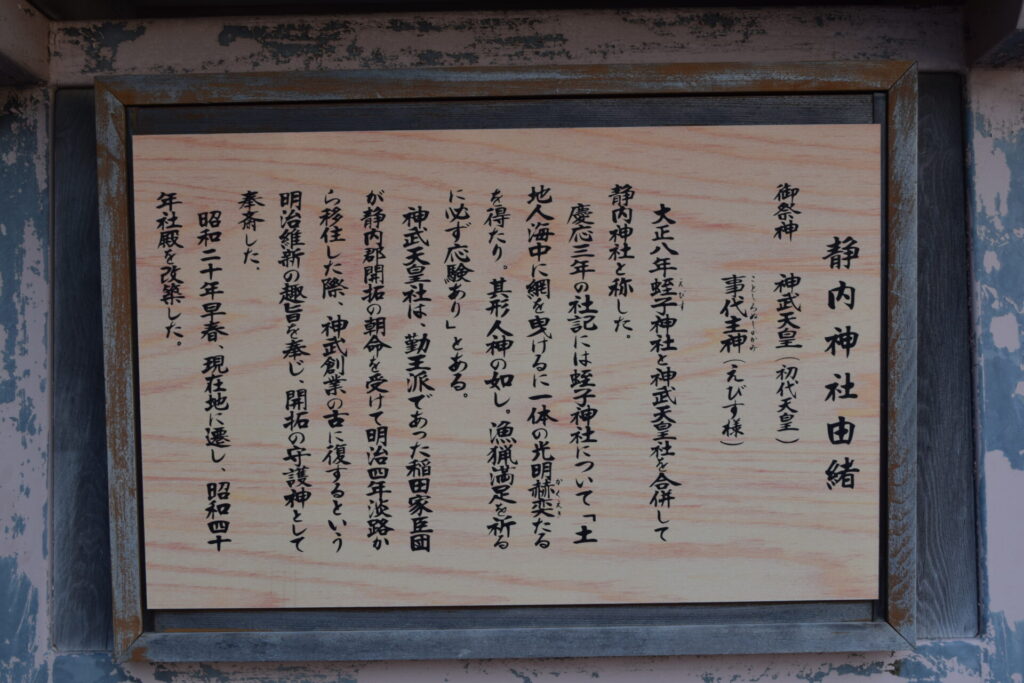 静内神社由緒
御祭神　神武天皇（初代天皇）
事代主神（えびす様）
大正八年蛭子神社と神武天皇社を合併して
静内神社と称した。
慶応三年の社記には蛭子神社について「土
地人海中に網を曳げるに一体の光明赫奕たる
を得たり。其形人神の如し。漁猟満足を祈る
に必ず応験あり」とある。
神武天皇社は、勤王派であった稲田家臣団
が静内郡開拓の朝命を受けて明治四年淡路か
ら移住した際、神武創業の古に復するという
明治維新の趣旨を奉じ、開拓の守護神として
奉斎した、
昭和二十年早春、現在地に遷し、昭和四十
年社殿を改築した。